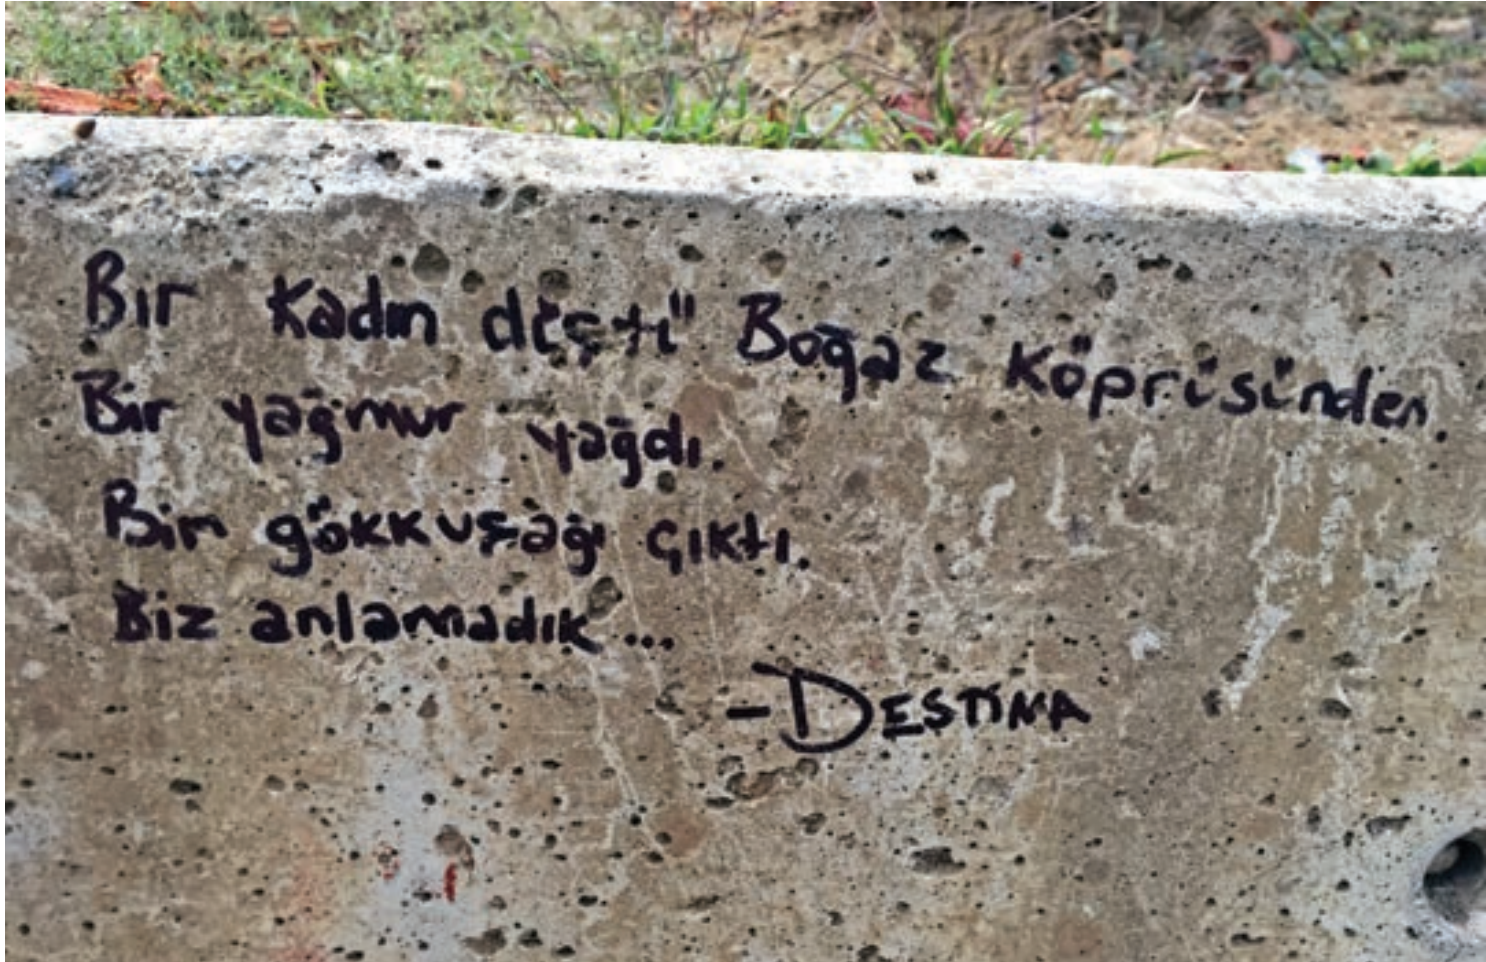 Bir kadın düştü" Boğaz köprüsünden.
Bir yağmur yağdı.
Bir gökkuşağı çıktı.
Biz anlamadık...
-DESTİNA